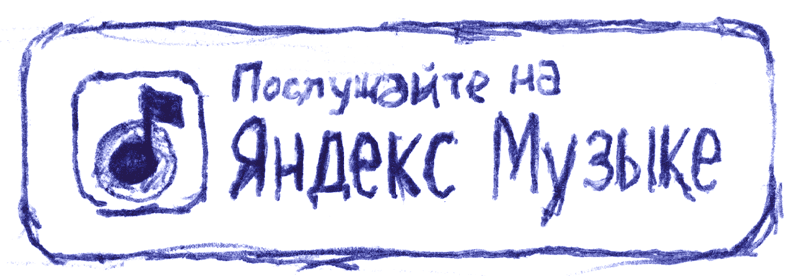 Послушайте на
Яндекс Музыке